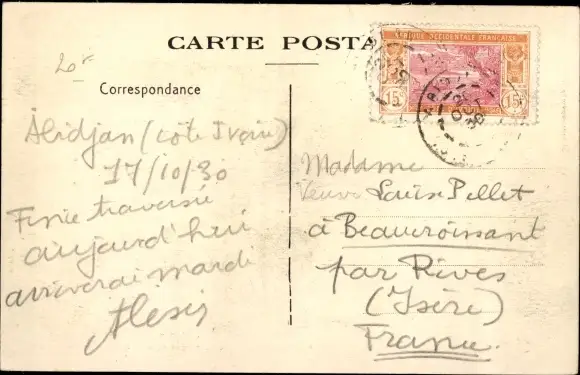 CARTE POSTA
AFRIQUE OCCIDENTALE FRANÇAISE
15 15
Correspondance
Abidjan (Côte Ivoire)
17/10/30
Finie traversée
aujourd'hui
arriverai mardi
Alexis
Madame
Veuve Louis Pellet
à Beaucroissant
par Rives
(Isère)
France